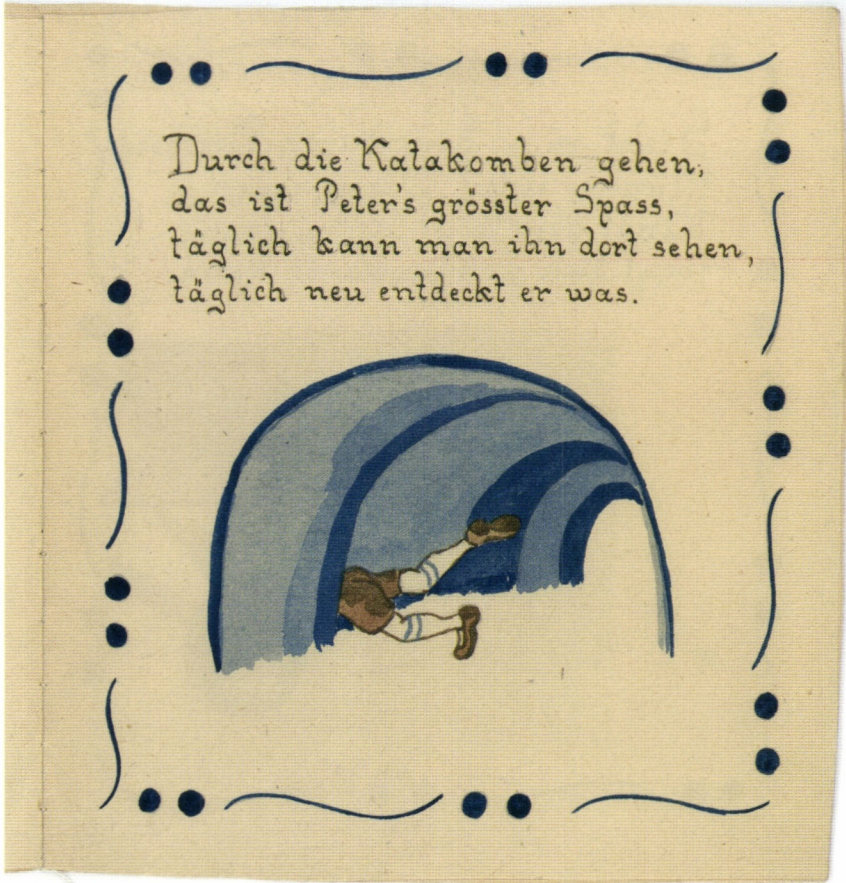 Durch die Katakomben gehen,
das ist Peter's grösster Spass,
täglich kann man ihn dort sehen,
täglich neu entdeckt er was.